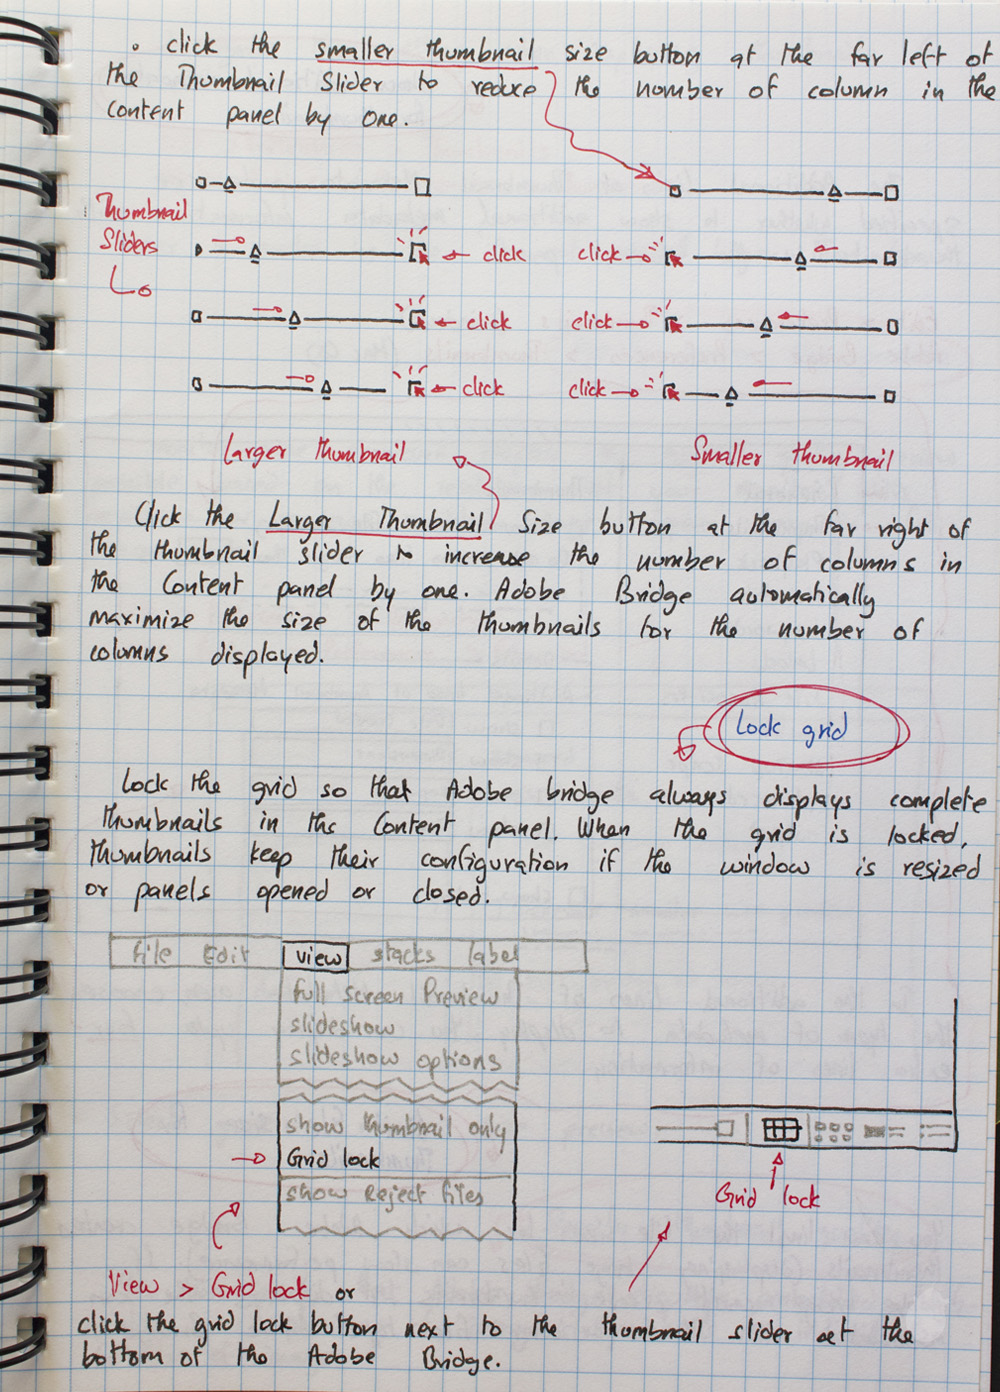 . click the smaller thumbnail size button at the far left of
the Thumbnail Slider to reduce the number of column in the
content panel by one.
Thumbnail
Sliders
click click
click click
click click
Larger thumbnail Smaller thumbnail
Click the Larger Thumbnail Size button at the far right of
the thumbnail slider to increase the number of columns in
the Content panel by one. Adobe Bridge automatically
maximize the size of the thumbnails for the number of
columns displayed.
Lock grid
Lock the grid so that Adobe bridge always displays complete
thumbnails in the Content panel. When the grid is locked,
thumbnails keep their configuration if the window is resized
or panels opened or closed.
File Edit view stacks label
full screen Preview
slideshow
slideshow options
show thumbnail only
Grid lock
show Reject files
Grid lock
View > Grid lock or
click the grid lock button next to the thumbnail slider aet the
bottom of the Adobe Bridge.